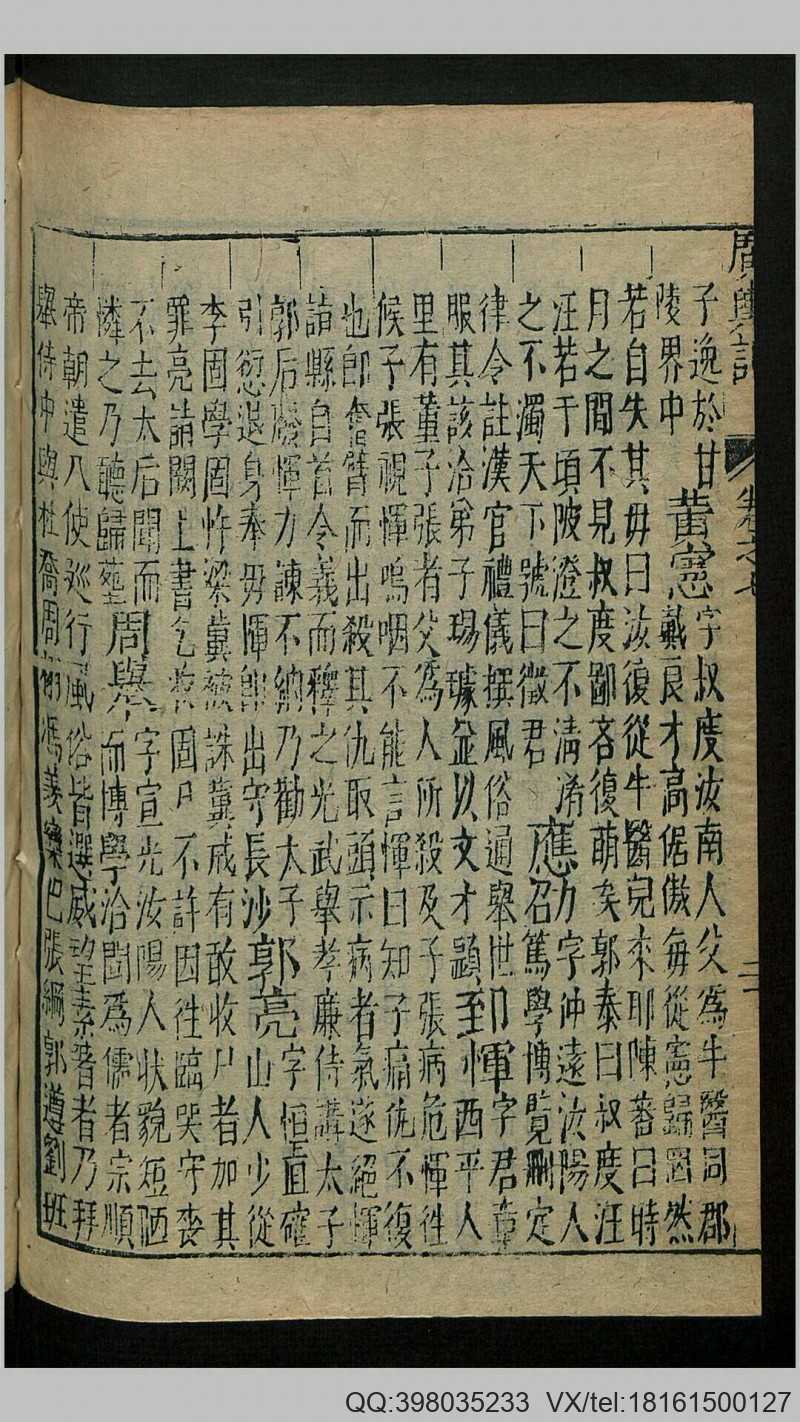 廣輿記 卷之七 二
子逸於甘陵界中 黃憲字叔度汝南人父爲牛醫同郡
戴良才高倨傲每從憲歸罔然
若自失其母曰汝復從牛醫兒來耶陳蕃曰時
月之間不見叔度鄙吝復萌矣郭泰曰叔度汪
汪若千頃陂澄之不清淆
之不濁天下號曰徵君 應劭字沖遠汝陽人
召篤學博覽刪定
律令註漢官禮儀撰風俗通舉世
服其該洽弟子瑒璩並以文才顯 郅惲字君章
西平人
里有董子張者父爲人所殺及子張病危惲往
候子張視惲嗚咽不能言惲曰知子痛仇不復
也即奮臂而出殺其仇取頭示病者氣遂絕惲
詣縣自首令義而釋之光武舉孝廉侍講太子
郭后廢惲力諫不納乃勸太子
引愆退身奉母惲即出守長沙 郭亮字恒直確
山人少從
李固學固忤梁冀被誅冀戒有敢收尸者加其
罪亮詣闕上書乞收固尸不許因徃臨哭守喪
不去太后聞而
憐之乃聽歸葬 周舉字宣光汝陽人狀貌短陋
而博學洽聞爲儒者宗順
帝朝遣八使巡行風俗皆選威望素著者乃拜
舉侍中與杜喬周栩馮羨欒巴張綱郭遵劉班